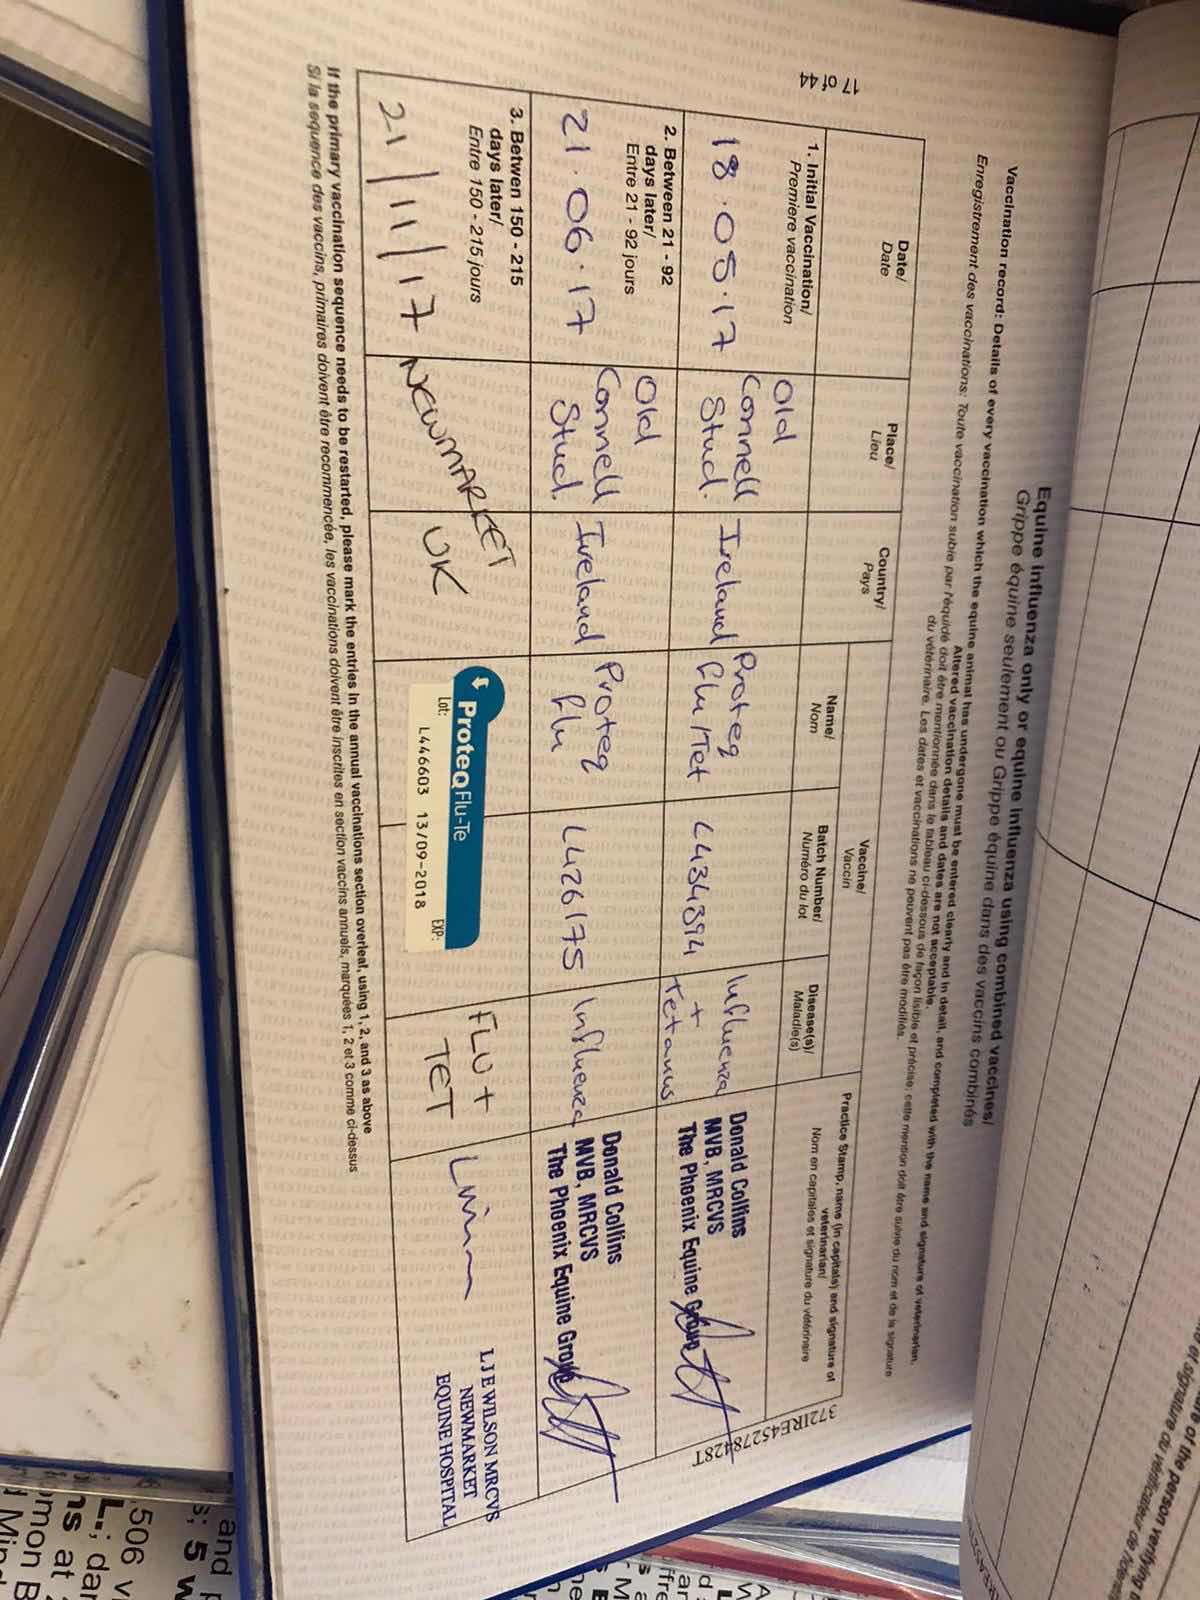 17 of 44
Equine Influenza only or equine influenza using combined vaccines/
Grippe équine seulement ou Grippe équine dans des vaccins combinés
Vaccination record: Details of every vaccination which the equine animal has undergone must be entered clearly and in detail, and completed with the name and signature of veterinarian.
Altered vaccination details and dates are not acceptable.
Enregistrement des vaccinations: Toute vaccination subie par l'équidé doit être mentionnée dans le tableau ci-dessous de façon lisible et précise; cette mention doit être suivie du nom et de la signature
du vétérinaire. Les dates et vaccinations ne peuvent pas être modifiés.
Date/
Date
Place/
Lieu
Country/
Pays
Vaccine/
Vaccin
Name/
Nom
Batch Number/
Numéro du lot
Disease(s)/
Maladie(s)
Practice Stamp, name (in capitals) and signature of
veterinarian/
Nom en capitales et signature du vétérinaire
1. Initial Vaccination/
Premiere vaccination
18.05.17
Old
Connell
Stud.
Ireland
Proteq
Flu/Tet
L434394
Influenza
+
Tetanus
Donald Collins
MVB, MRCVS
The Phoenix Equine Group
2. Between 21 - 92
days later/
Entre 21 - 92 jours
21.06.17
Old
Connell
Stud.
Ireland
Proteq
Flu
L426175
Influenza
Donald Collins
MVB, MRCVS
The Phoenix Equine Group
3. Betwen 150 - 215
days later/
Entre 150 - 215 jours
21/11/17
NEWMARKET
UK
ProteqFlu-Te
Lot:
EXP:
L446603 13/09-2018
FLU +
TET
L J E WILSON MRCVS
NEWMARKET
EQUINE HOSPITAL
If the primary vaccination sequence needs to be restarted, please mark the entries in the annual vaccinations section overleaf, using 1, 2, and 3 as above
Si la sequence des vaccins, primaires doivent être recommencée, les vaccinations doivent être inscrites en section vaccins annuels, marquées 1, 2 et 3 comme ci-dessus
372IRE45278428T